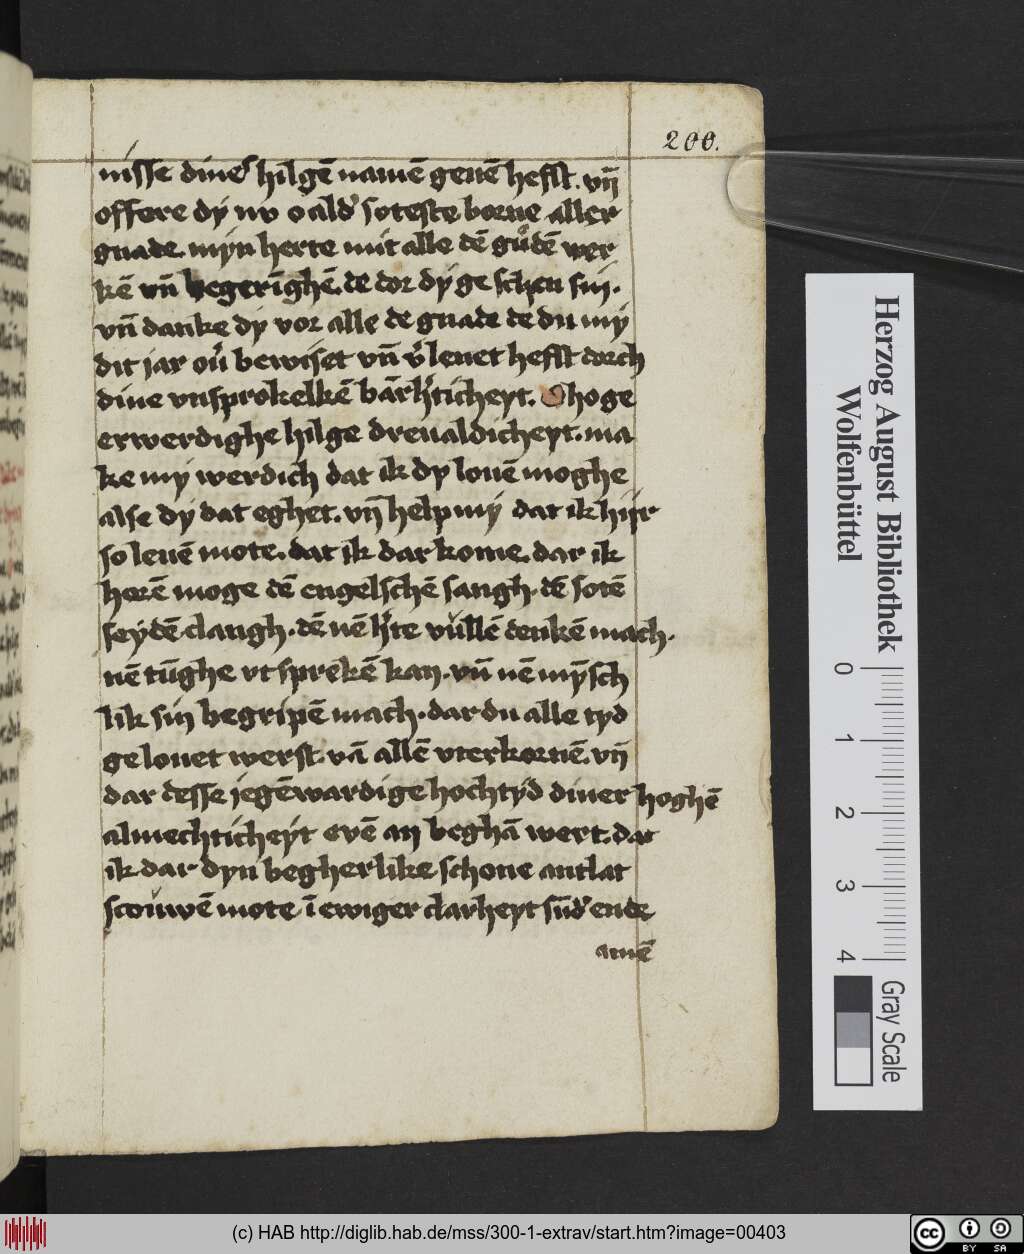 200.
nisse dineᷣ hilgē namē geuē hefft. vn̄
offere dÿ nv o aldᷣ soteste borne aller
gnade. mÿn herte mit alle dē gůdē wer
kē vn̄ begerīghē. de dor dÿ ge schen sin.
vn̄ danke dÿ vor alle de gnade de du mÿ
dit jar ouᷣ bewiset vn̄ vᷣlenet hefft dorch
dine vnsprokelkē bārhᷣticheyt. O hoge
erwerdighe hilge dreualdicheyt. ma
ke mÿ werdich dat ik dy louē moghe
alse dÿ dat eghet. vn̄ help mÿ dat ik hijr
so leuē mote. dat ik dar kome. dar ik
horē moge dē engelschē sangh. dē sotē
seydē clangh. dē nē hᷣte vullē denkē mach.
nē tūghe vt sprekē kan. vn̄ nē mȳsch
lik sin begripē mach. dar du alle tyd
ge louet werst. vā allē vterkornē. vn̄
dar desse jegēwardige hochtyd diner hoghē
almechticheÿt evē an beghā wert. dat
ik dar dyn begherlike schone antlat
scouwē mote ī ewiger clarheyt sūdᷣ ende
amē
Herzog August Bibliothek
Wolfenbüttel
0 1 2 3 4
Gray Scale
(c) HAB http://diglib.hab.de/mss/300-1-extrav/start.htm?image=00403
cc BY SA